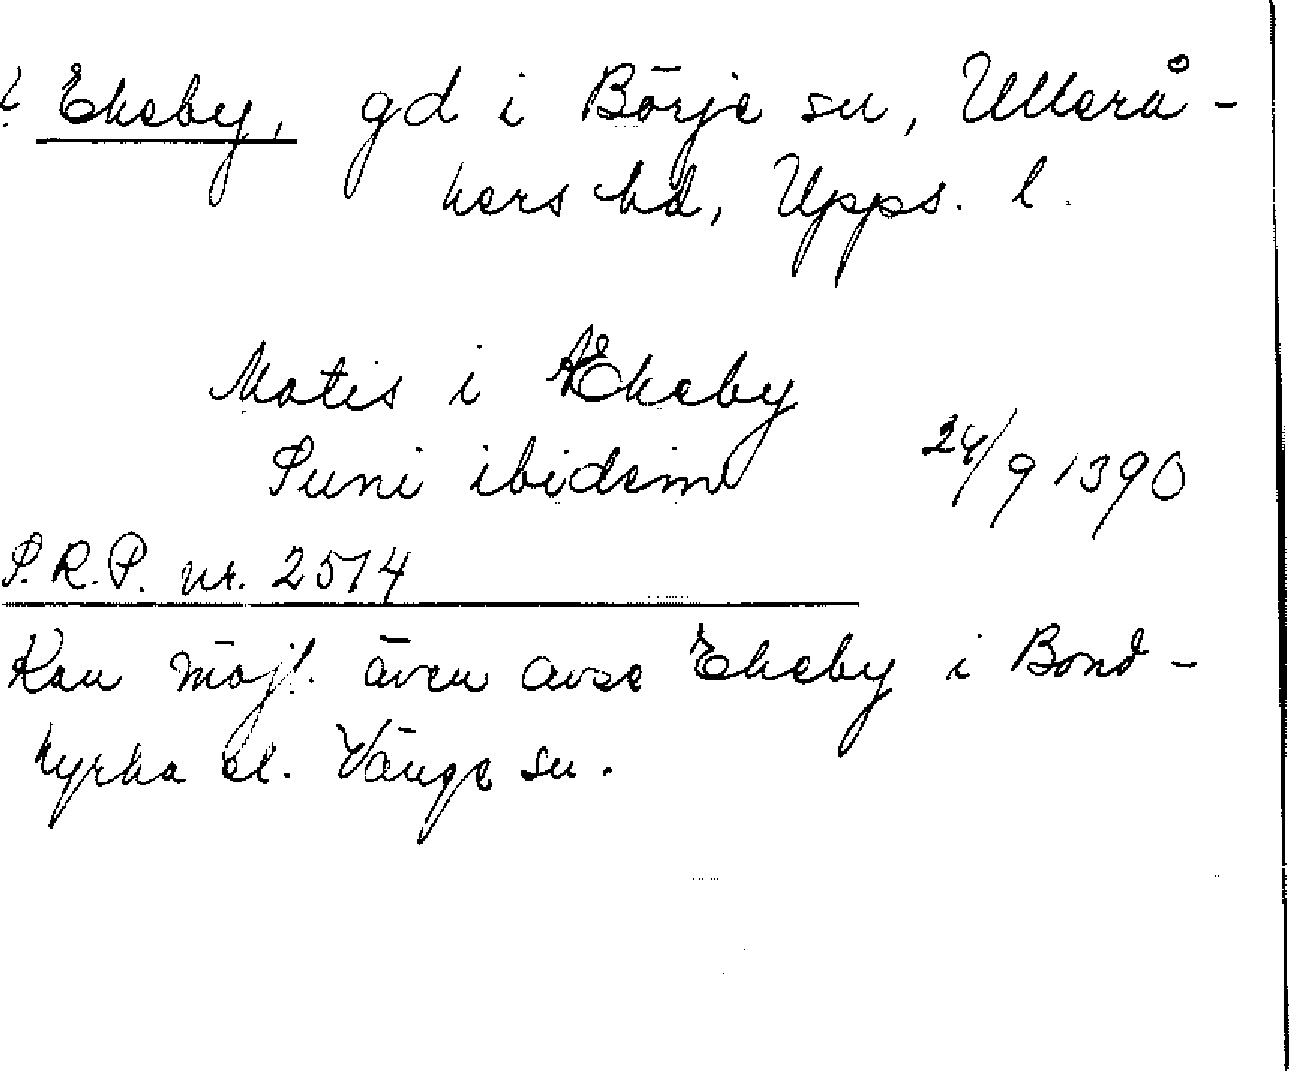 ? Ekeby, gd i Börje sn, Ullerå-
kers hd, Upps. l.
Matis i Ækeby
Suni ibidem 24/9 1390
S.R.P. nr. 2514
Kan möjl. även avse Ekeby i Bond-
kyrka el. Vänge sn.